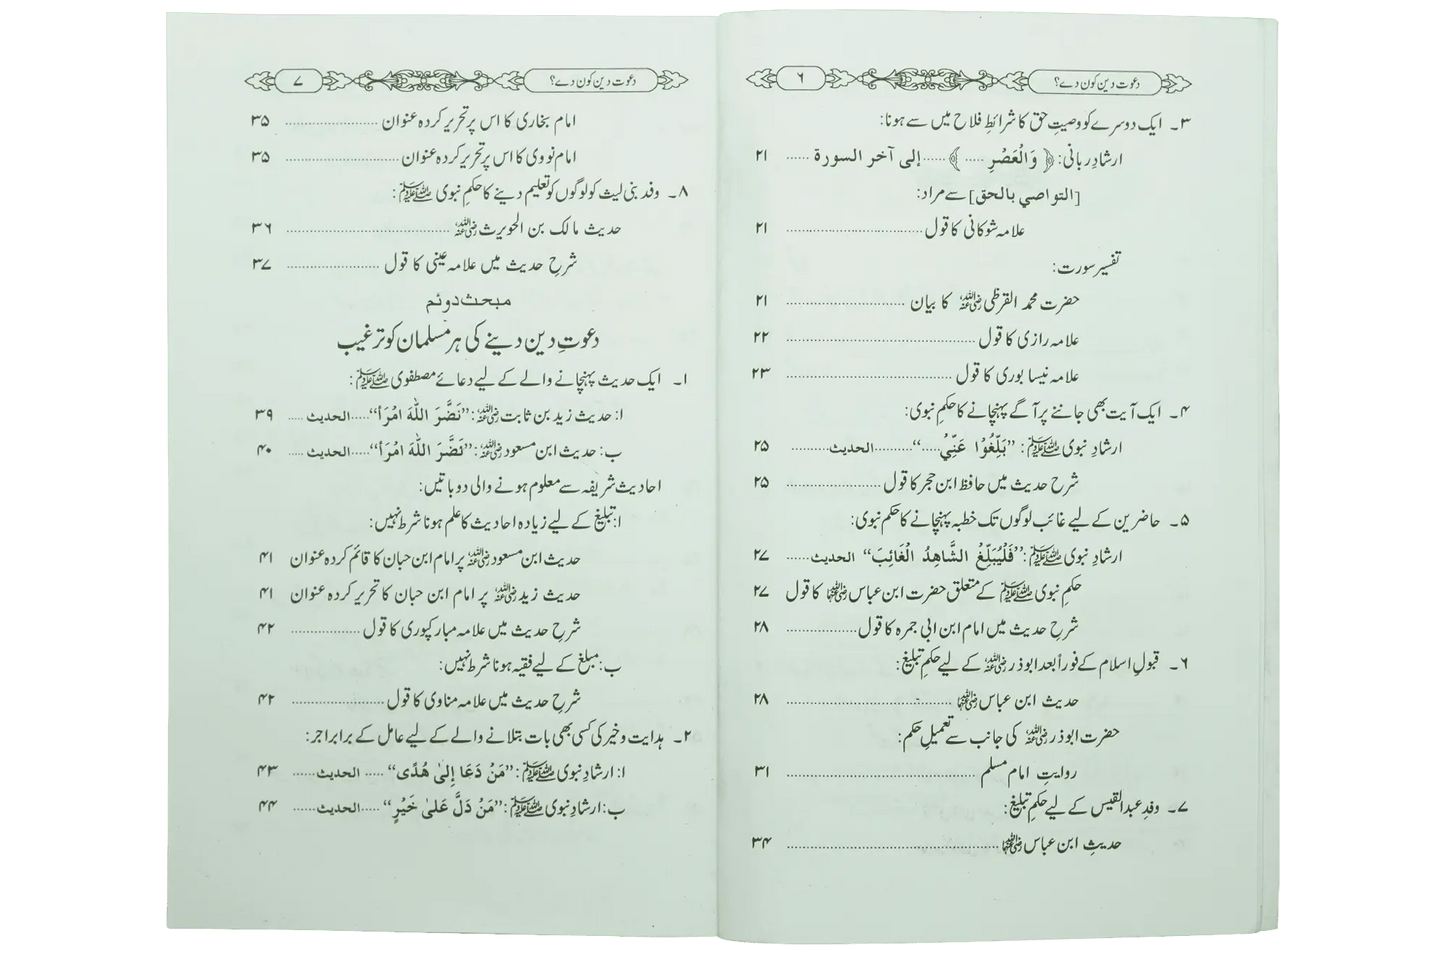 دعوت دین کون دے؟ ۶
۳۔ ایک دوسرے کو وصیتِ حق کا شرائطِ فلاح میں سے ہونا:
ارشادِ ربانی: ﴿وَالْعَصْرِ ..... ﴾ ......إلى آخر السورة ...... ۲۱
[التواصي بالحق] سے مراد:
علامہ شوکانی کا قول ........................ ۲۱
تفسیر سورت:
حضرت محمد القرظی رضی اللہ عنہ کا بیان ........................ ۲۱
علامہ رازی کا قول ........................ ۲۲
علامہ نیسابوری کا قول ........................ ۲۳
۴۔ ایک آیت بھی جاننے پر آگے پہنچانے کا حکمِ نبوی:
ارشادِ نبوی ﷺ: ”بَلِّغُوْا عَنِّيْ.....“.........الحديث......... ۲۵
شرح حدیث میں حافظ ابن حجر کا قول ........................ ۲۵
۵۔ حاضرین کے لیے غائب لوگوں تک خطبہ پہنچانے کا حکم نبوی:
ارشادِ نبوی ﷺ: ”فَلْيُبَلِّغْ الشَّاهِدُ الْغَائِبَ“ الحديث...... ۲۷
حکمِ نبوی ﷺ کے متعلق حضرت ابن عباس رضی اللہ عنہما کا قول ۲۷
شرح حدیث میں امام ابن ابی جمرہ کا قول .................. ۲۸
۶۔ قبولِ اسلام کے فوراً بعد ابوذر رضی اللہ عنہ کے لیے حکمِ تبلیغ:
حدیث ابن عباس رضی اللہ عنہما ........................ ۲۸
حضرت ابوذر رضی اللہ عنہ کی جانب سے تعمیلِ حکم:
روایتِ امام مسلم ........................ ۳۱
۷۔ وفدِ عبدالقیس کے لیے حکمِ تبلیغ:
حدیثِ ابن عباس رضی اللہ عنہما ........................ ۳۴
دعوت دین کون دے؟ ۷
امام بخاری کا اس پر تحریر کردہ عنوان .................... ۳۵
امام نووی کا اس پر تحریر کردہ عنوان ........................ ۳۵
۸۔ وفد بنی لیث کو لوگوں کو تعلیم دینے کا حکمِ نبوی ﷺ:
حدیث مالک بن الحویرث رضی اللہ عنہ ........................ ۳۶
شرحِ حدیث میں علامہ عینی کا قول .................... ۳۷
مبحث دوئم
دعوتِ دین دینے کی ہر مسلمان کو ترغیب
۱۔ ایک حدیث پہنچانے والے کے لیے دعائے مصطفوی ﷺ:
ا: حدیث زید بن ثابت رضی اللہ عنہ: ”نَضَّرَ اللّٰهَ امْرَأً“.....الحدیث .... ۳۹
ب: حدیث ابن مسعود رضی اللہ عنہ: ”نَضَّرَ اللّٰهَ امْرَأً“.....الحدیث .... ۴۰
احادیث شریفہ سے معلوم ہونے والی دو باتیں:
ا: تبلیغ کے لیے زیادہ احادیث کا علم ہونا شرط نہیں:
حدیث ابن مسعود رضی اللہ عنہ پر امام ابن حبان کا قائم کردہ عنوان ۴۱
حدیث زید رضی اللہ عنہ پر امام ابن حبان کا تحریر کردہ عنوان ۴۱
شرحِ حدیث میں علامہ مبارکپوری کا قول .................. ۴۲
ب: مبلغ کے لیے فقیہ ہونا شرط نہیں:
شرحِ حدیث میں علامہ مناوی کا قول .................... ۴۲
۲۔ ہدایت و خیر کی کسی بھی بات بتلانے والے کے لیے عامل کے برابر اجر:
ا: ارشادِ نبوی ﷺ: ”مَنْ دَعَا إِلىٰ هُدًى“ ..... الحدیث...... ۴۳
ب: ارشادِ نبوی ﷺ: ”مَنْ دَلَّ عَلىٰ خَيْرٍ“ .....الحدیث...... ۴۴